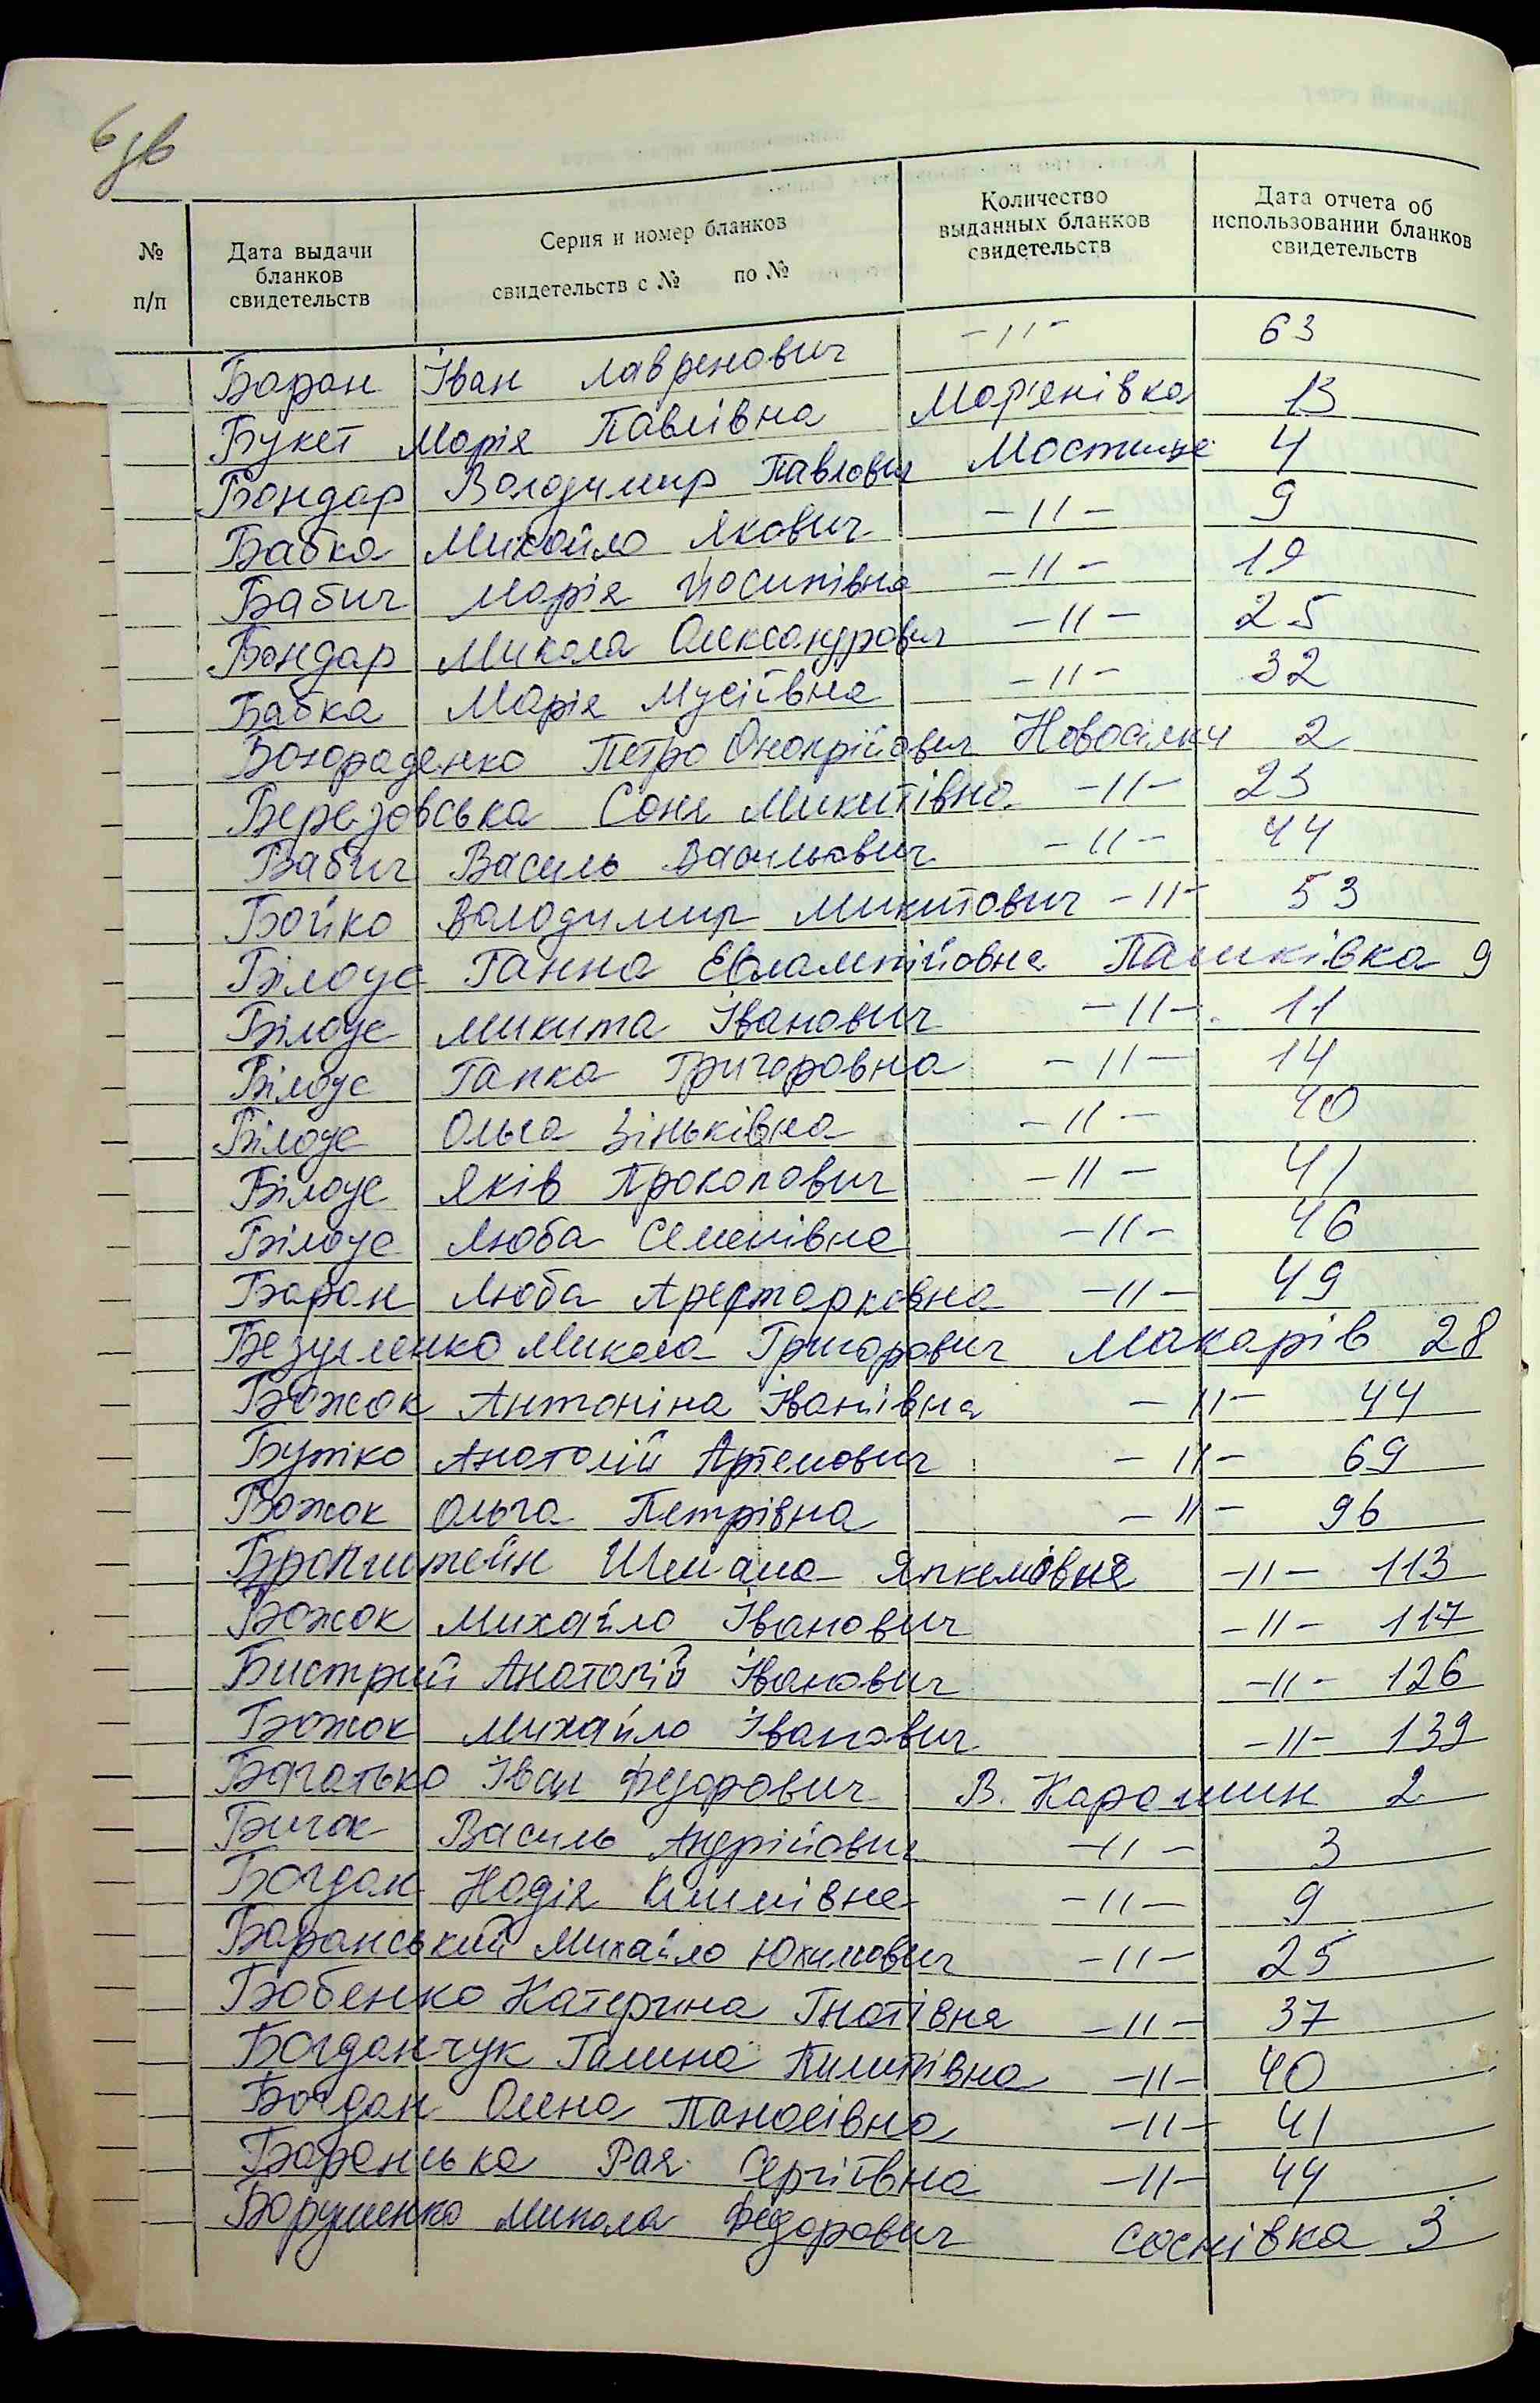 6зв
№ п/п
Дата выдачи бланков свидетельств
Серия и номер бланков свидетельств с № по №
Количество выданных бланков свидетельств
Дата отчета об использовании бланков свидетельств
Баран Іван Лавренович -"- 63
Букет Марія Павлівна Мар'янівка 13
Бондар Володимир Павлович Мостище 4
Бабка Михайло Якович -"- 9
Бабич Марія Йосипівна -"- 19
Бондар Микола Олександрович -"- 25
Бабка Марія Мусіївна -"- 32
Богораденко Петро Онопрійович Новосілки 2
Березовська Соня Микитівна -"- 23
Бабич Василь Васильович -"- 44
Бойко Володимир Микитович -"- 53
Білоус Ганна Евлампійовна Пашківка 9
Білоус Микита Іванович -"- 11
Білоус Гапка Григоровна -"- 14
Білоус Ольга Зіньківна -"- 40
Білоус Яків Прокопович -"- 41
Білоус Люба Семенівна -"- 46
Баран Люба Аристарковна -"- 49
Безугленко Микола Григорович Макарів 28
Божок Антоніна Іванівна -"- 44
Бутко Анатолій Артемович -"- 69
Божок Ольга Петрівна -"- 96
Бронштейн -"- 113
Божок Михайло Іванович -"- 117
Бистрий Анатолій Іванович -"- 126
Божок Михайло Іванович -"- 139
Багатько Іван Федорович В. Карашин 2
Бичок Василь Андрійович -"- 3
Богдан Надія -"- 9
Баранський Михайло Юхимович -"- 25
Бобенко Катерина Гнатівна -"- 37
Богданчук Галина Пилипівна -"- 40
Богдан Олена Панасівна -"- 41
Баранська Рая Сергіївна -"- 44
Борушенко Микола Федорович Соснівка 3